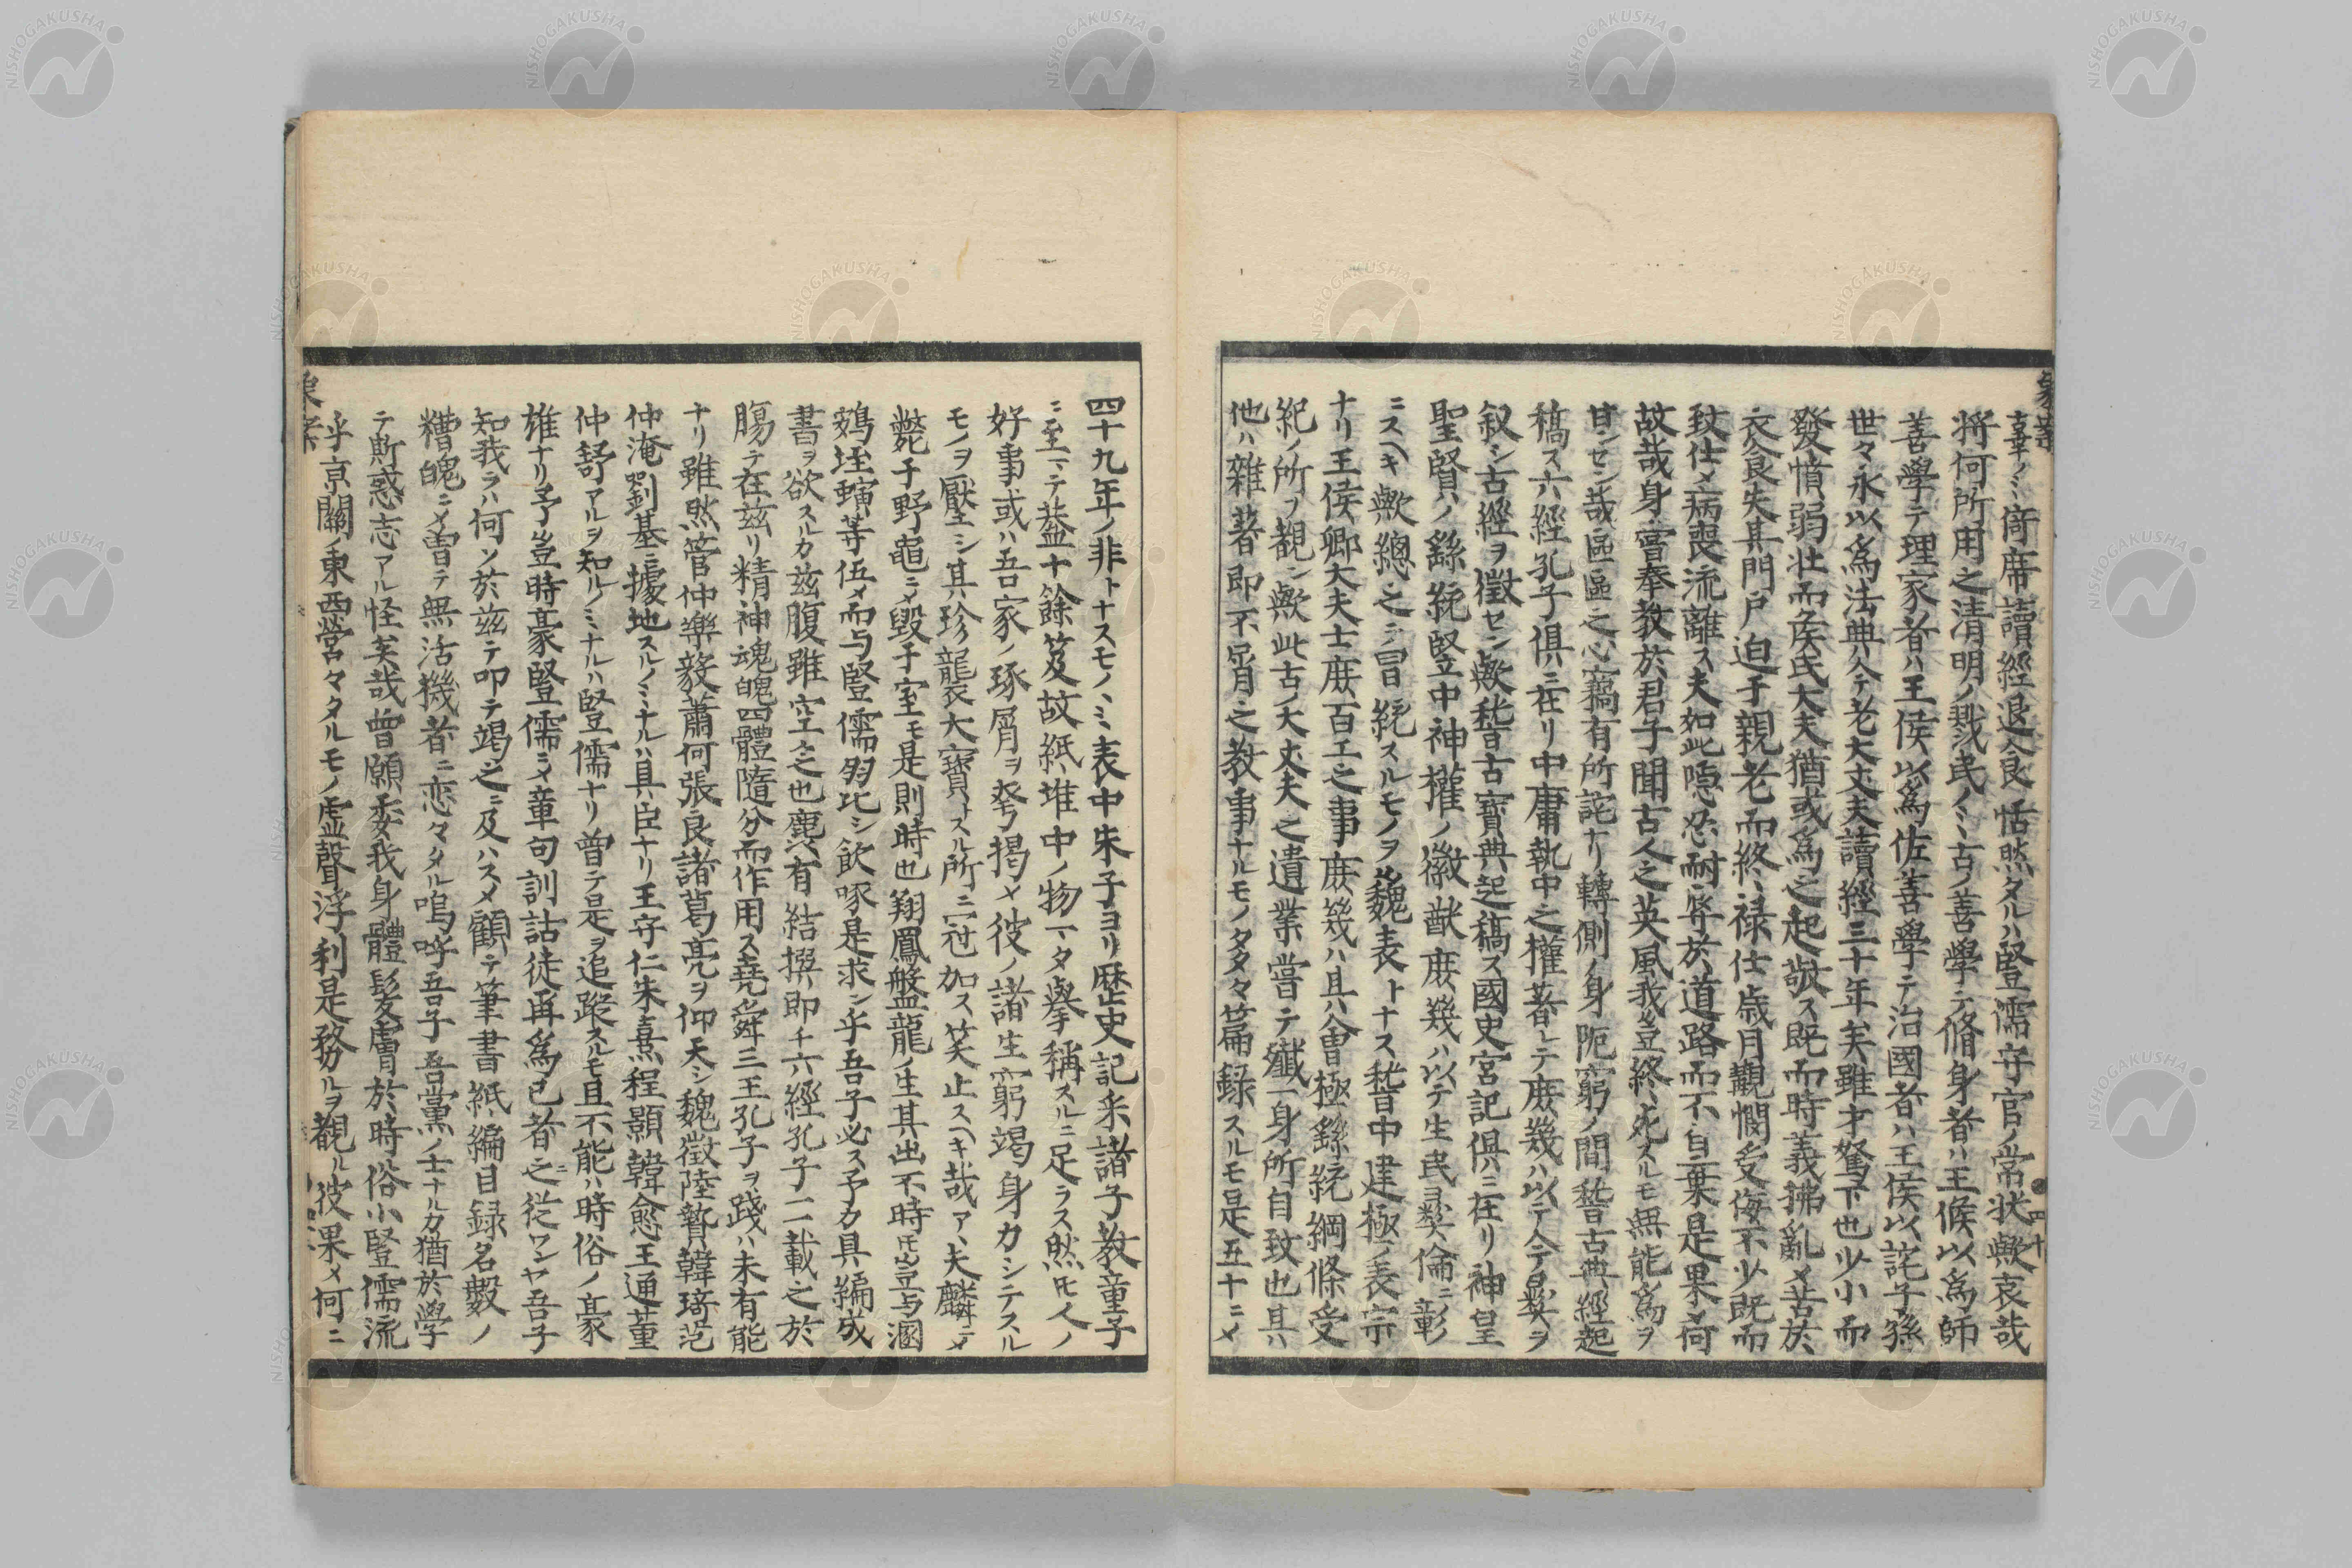 臺ノミ倚席讀經退食恬然タルハ豎儒守官ノ常状歟哀哉
將何所用之清明ノ戮民ノミ古ノ善學テ脩身者ハ王候以為師
善學テ理家者ハ王侯以為佐善學テ治國者ハ王侯以詫子孫
世々永以為法典今テ老大丈夫讀經三十年矣雖才駑下也少小而
發憤弱壮而矦氏大夫猶或為之起敬ス既而時義拂亂メ苦於
衣食失其門戸迫于親老而終禄仕歳月觀憫受侮不少既而
致仕メ病喪流離ス夫如此隠忍耐辱於道路而不自棄是果メ何
故哉身嘗奉教於君子聞古人之英風我豈終死スルモ無能為ヲ
甘ンセン哉區區之心竊有所詫ナリ轉側ノ身阨窮ノ間嵆古典經起
稿ス六經孔子倶ニ在リ中庸執中之權著シテ庶幾ハ以テ人テ彛ヲ
叙シ古經ヲ徴セン歟嵆古寳典起稿ス國史宮記倶ニ在リ神皇
聖賢ハノ繇統竪立中神權ノ徽猷庶幾ハ以テ生民彛倫ニ彰
ニスヘキ歟總之ニ冒統スルモノヲ魏表トナス嵆中建極ノ表宗
ナリ王侯卿大夫士庶百工之事庶幾ハ具ハ會極繇統綱條受
紀ノ所ヲ觀ン歟此古ノ大丈夫之遺業嘗テ殲一身所自致也其ハ
他ハ雜著即不屑之教事ナルモノ夕夕々篇録スルモ是五十ニメ
四十九年ノ非トナスモノノミ表中朱子ヨリ歴史記釆諸子教童子
ニ至マテ葢十餘笈故紙堆中ノ物マタ擧稱スルニ足ラス然𪜈人ノ
好事或ハ吾家ノ琢屑ヲ發揭メ彼ノ諸生窮竭身カシテスル
モノヲ厭ヱシ其珍襲大寳トスル所ニ冠加ス笑止スヘキ哉ア丶夫麟ニメ
斃于野黽ニメ毀于室モ是則時也翔鳳盤龍ノ生其出不時𪜈豈与溷
鵶垤螾等伍メ而与豎儒匆比シ飲啄是求ン乎吾子必ス予カ具編成
書ヲ欲スルカ茲腹雖空之也鹿㳒有結撰即チ六經孔子二載之於
腸テ在茲リ精神魂魄四體隨分而作用ス堯舜三王孔子ヲ踐ハ未有能
ナリ雖然管仲樂毅蕭何張良諸葛亮ヲ仰天シ魏徴陸贄韓琦范
仲淹劉基ニ據地スルノミナルハ具臣ナリ王守仁朱熹程顥韓愈王通董
仲舒アルヲ知ルノミナルハ豎儒ナリ曽テ是ヲ追蹤スルモ且不能ハ時俗ノ豪
雄ナリ予豈時豪豎儒ニメ章句訓詁徒再為已者之ニ從ワンヤ吾子
知我ラハ何ソ於茲テ叩テ竭之ニ及ハスメ顧テ筆書紙編目録名數ノ
糟魄ニメ曽テ無活機者ニ恋々タル嗚呼吾子吾黨ノ士ナルカ猶於學
テ斯惑志アル怪矣哉曽願委我身體髮膚於時俗小豎儒流
乎京關東西營々タルモノ虚聲浮利是務ルヲ觀ル彼果メ何ニ
四十
NISHOGAKUSHA